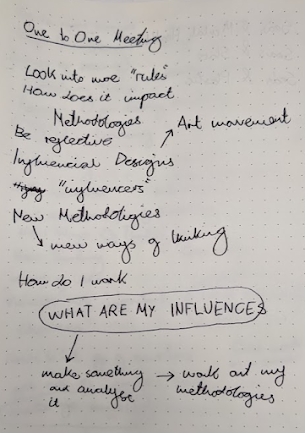 One to One Meeting
Look into more "rules"
How does it impact
Methodologies
Be reflective
Art movement
Influencial Designs
"influencers"
New Methodoligies
new ways of thinking
How do I work
WHAT ARE MY INFLUENCES
make something
and analyse
it
work out my
methodologies